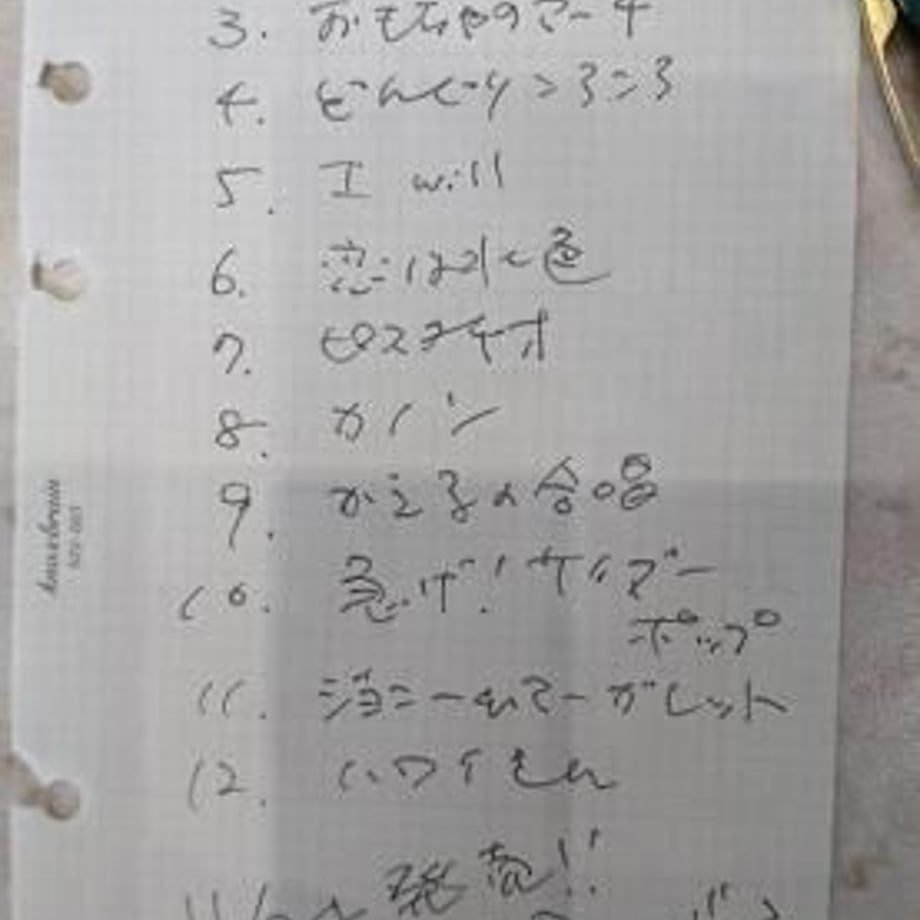 3. おもちゃのマーチ
4. どんぐりころころ
5. I will
6. 恋は水色
7. ピスタチオ
8. カノン
9. かえるの合唱
10. 急げ!サイダー
ポップ
11. ジョニー&マーガレット
12. ハワイもん
発売!!